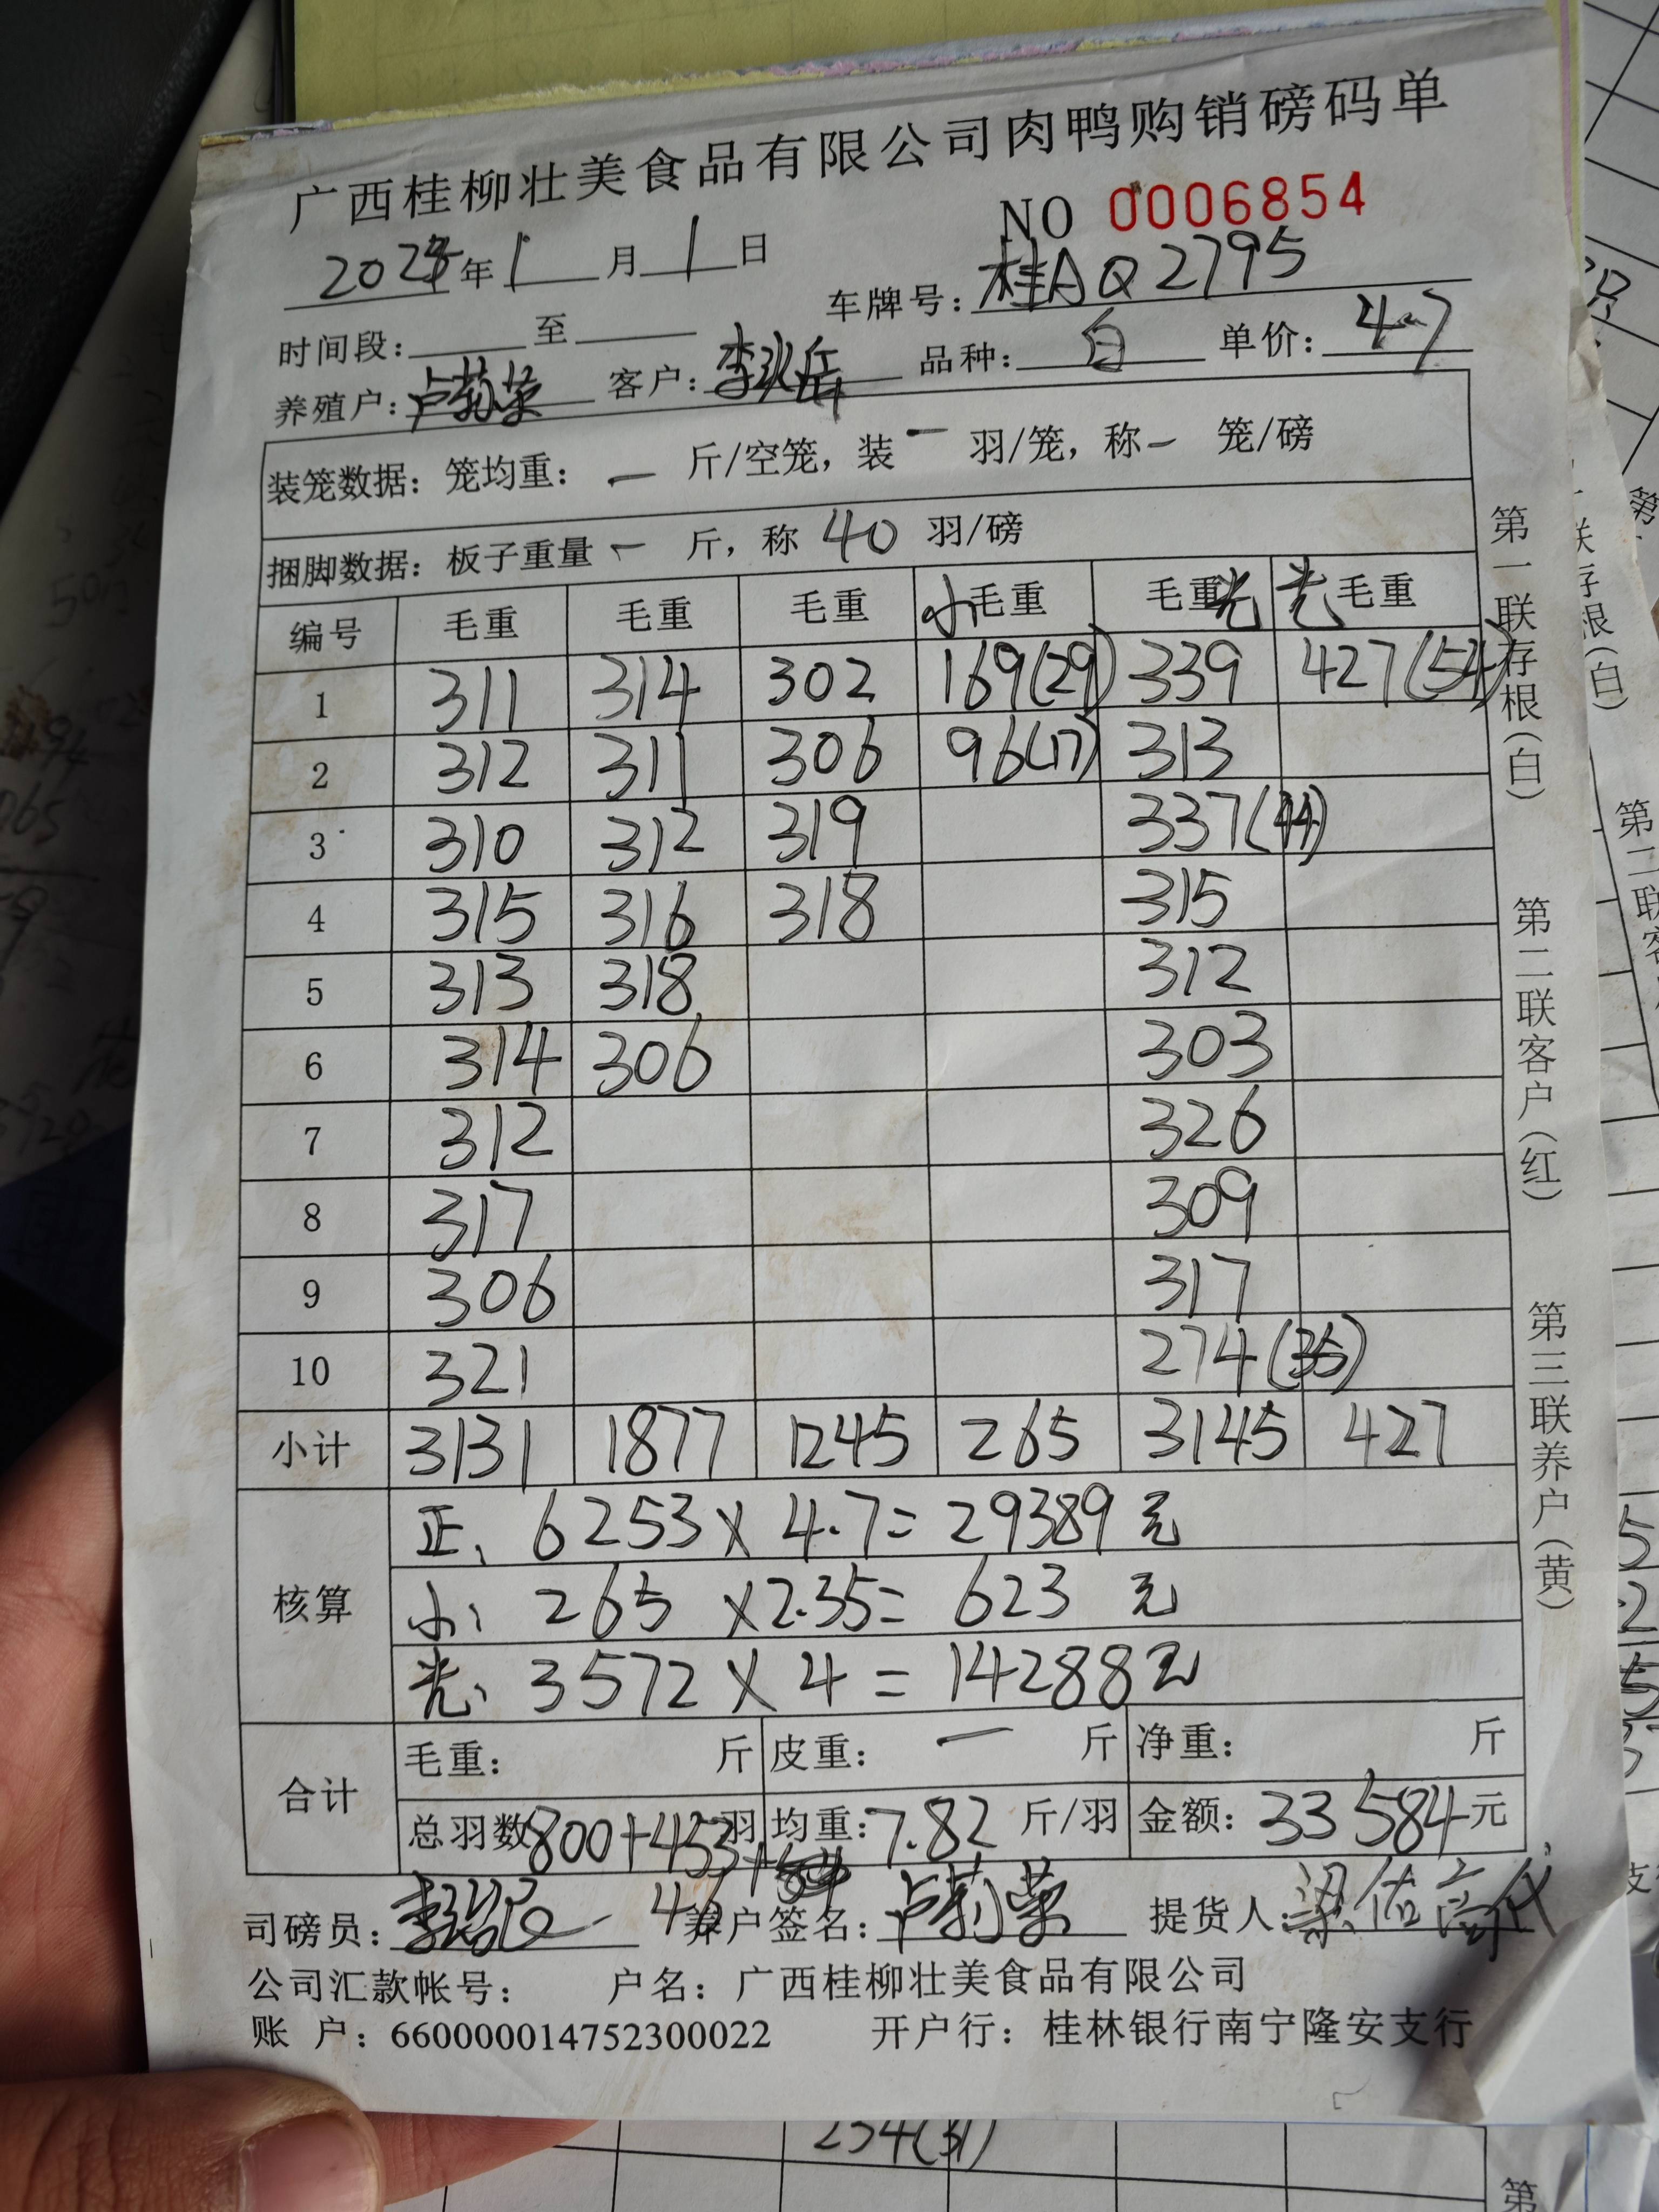 广西桂柳壮美食品有限公司肉鸭购销磅码单
NO 0006854
年 1 月 1 日
车牌号：桂AQ2795
时间段： 至
养殖户： 客户： 品种：白 单价：4.7
装笼数据：笼均重：一 斤/空笼，装 一 羽/笼，称一 笼/磅
捆脚数据：板子重量 一 斤，称 40 羽/磅
编号 毛重 毛重 毛重 小毛重 毛重光 光毛重
1 311 314 302 169(29) 339 427(54)
2 312 311 306 96(17) 313
3 310 312 319 337(44)
4 315 316 318 315
5 313 318 312
6 314 306 303
7 312 326
8 317 309
9 306 317
10 321 274(35)
小计 3131 1877 1245 265 3145 427
核算
正、6253×4.7=29389元
小、265×2.35=623元
光、3572×4=14288元
合计
毛重： 斤 皮重：一 斤 净重： 斤
总羽数800+453羽 均重：7.82 斤/羽 金额：33584元
46
司磅员： 养户签名： 提货人：
公司汇款帐号： 户名：广西桂柳壮美食品有限公司
账 户：660000014752300022 开户行：桂林银行南宁隆安支行
第一联存根（白）
第二联客户（红）
第三联养户（黄）
254(31)